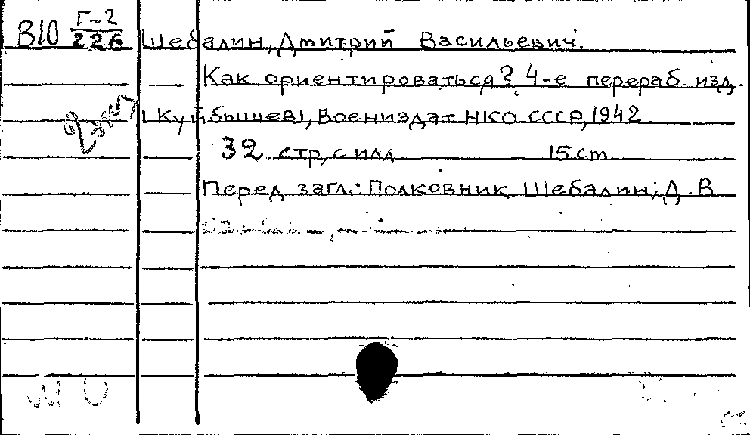 В10 Г-2/226 Шебалин, Дмитрий Васильевич.
Как ориентироваться? 4-е перераб изд.
(Куйбышев), Воениздат НКО СССР, 1942
32 стр, с илл 15 cm
Перед загл.: Полковник Шебалин, Д. В